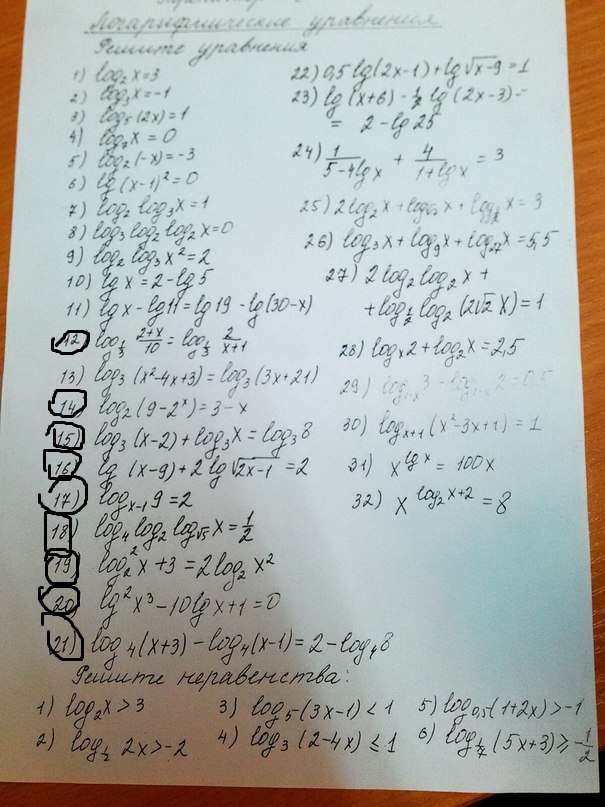 Логарифмические уравнения.
Решите уравнения
1) log₂x=3
2) log₃x=-1
3) log₅(2x)=1
4) x = 0
5) log₂(-x)=-3
6) lg(x-1)²=0
7) log₂log₃x=1
8) log₃log₂log₂x=0
9) log₂log₃x²=2
10) lg x=2-lg5
11) lgx-lg11=lg19-lg(30-x)
12) log_{1/3} (2+x)/10 = log_{1/3} 2/(x+1)
13) log₃(x²-4x+3)=log₃(3x+21)
14) log₂(9-2ˣ)=3-x
15) log₃(x-2)+log₃x=log₃8
16) lg(x-9)+2lg√(2x-1)=2
17) log_{x-1}9=2
18) log₄log₂log_{√5}x=1/2
19) log₂²x+3=2log₂x²
20) lg²x³-10lgx+1=0
21) log₄(x+3)-log₄(x-1)=2-log₄8
22) 0,5lg(2x-1)+lg√(x-9)=1
23) lg(x+6)-1/2 lg(2x-3)=
= 2-lg25
24) 1/(5-4lgx) + 4/(1+lgx) = 3
25) 2log₂x+ x+ x=3
26) log₃x+log₉x+log₂₇x=5,5
27) 2log₂log₂x+
+log_{1/2}log₂(2√2x)=1
28) logₓ2+log₂x=2,5
29) 0,5
30) log_{x+1}(x²-3x+1)=1
31) x^{lgx}=100x
32) x^{log₂x+2}=8
Решите неравенства:
1) log₂x>3
3) log₅(3x-1)<1
5) log_{0,5}(1+2x)>-1
2) log_{1/2}2x>-2
4) log₃(2-4x)≤1
6) log_{1/7}(5x+3)≥-1/2